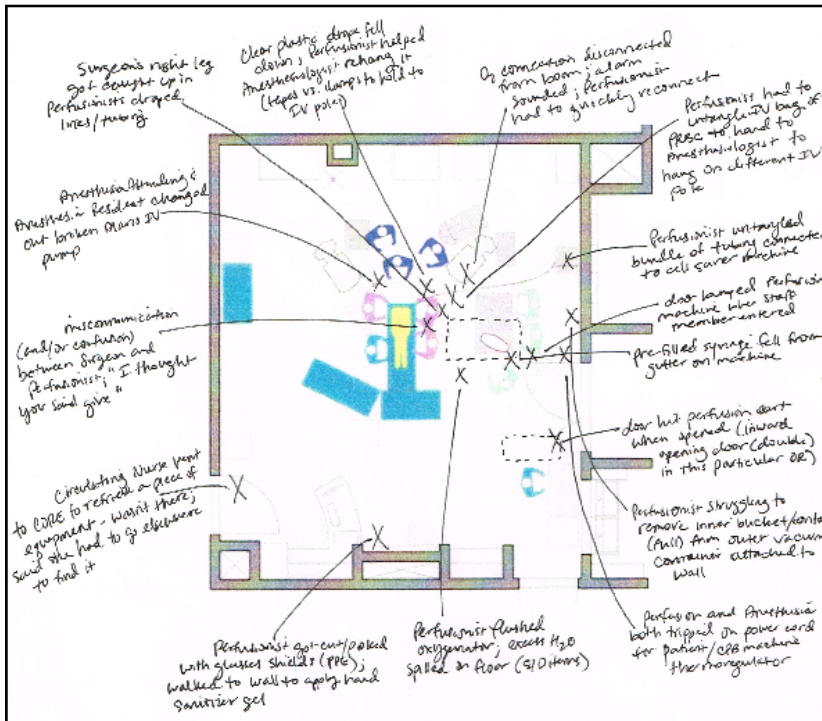 Surgeon's right leg
got caught up in
Perfusionists draped
lines/tubing
Clear plastic drape fell
down; Perfusionist helped
Anesthesiologist rehang it
(tapes vs. clamps to hold to
IV poles)
O2 connection disconnected
from boom; alarm
sounded; Perfusionist
had to quickly reconnect
Perfusionist had to
untangle IV bag of
PRBC to hand to
Anesthesiologist to
hang on different IV
pole
Anesthesia Attending &
Anesthesia Resident changed
out broken Alaris IV
pump
Perfusionist untangled
bundle of tubing connected
to cell saver machine
door bumped Perfusion
machine when staff
member entered
miscommunication
(and/or confusion)
between Surgeon and
Perfusionist; "I thought
you said give"
pre-filled syringe fell from
gutter on machine
door hit perfusion cart
when opened (inward
opening door (double)
in this particular OR)
Circulating Nurse went
to CORE to retrieve a piece of
equipment - wasn't there;
said she had to go elsewhere
to find it
Perfusionist struggling to
remove inner bucket/
(full) from outer vacuum
container attached to
wall
Perfusionist got cut/poked
with glasses shields (PPE);
walked to wall to apply hand
sanitizer gel
Perfusionist flushed
oxygenator; excess H2O
spilled on floor
Perfusion and Anesthesia
both tripped on power cord
for patient/CPB machine
thermoregulator